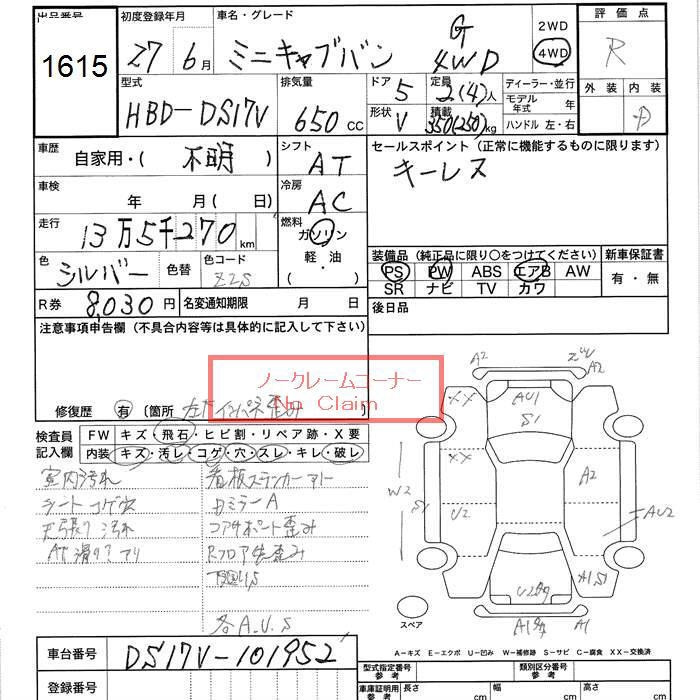 出品番号
1615
初度登録年月
27 6月
車名・グレード
ミニキャブバン
G
4WD
2WD
4WD
評価点
R
外装 内装
D
型式
HBD-DS17V
排気量
650 CC
ドア 5
形状 V
定員 2(4)人
積載 350(250)kg
ディーラー・並行
モデル年式 年
ハンドル 左・右
車歴
自家用・( 不明 )
シフト
AT
セールスポイント (正常に機能するものに限ります)
キーレス
車検
年 月( 日)
冷房
AC
走行
13万5千270km
燃料
ガソリン
軽油
( )
色
シルバー
色替
色コード
Z2S
装備品 (純正品に限り○をつけてください)
PS PW ABS エアB AW
SR ナビ TV カワ
新車保証書
有・無
R券 8,030円
名変通知期限 月 日
後日品
注意事項申告欄 (不具合内容等は具体的に記入して下さい)
ノークレームコーナー
No Claim
修復歴 有 〔箇所 左右インパネ歪み
検査員記入欄
FW キズ・飛石・ヒビ割・リペア跡・X要
内装 キズ・汚レ・コゲ・穴・スレ・キレ・破レ
室内汚れ
シートコゲ穴
天張り汚れ
AT滑りアリ
看板ステッカーアト
コアサポート歪み
Rフロア先歪み
下回りS
各A.U.S
A2
A2
XX
AU1
S1
XX
W2
S1
U2
A2
AU2
A1S1
A1
スペア
A=キズ E=エクボ U=凹み W=補修跡 S=サビ C=腐食 XX=交換済
車台番号
DS17V-101952
登録番号
型式指定番号
類別区分番号
車庫証明用
長さ cm
幅 cm
高さ cm